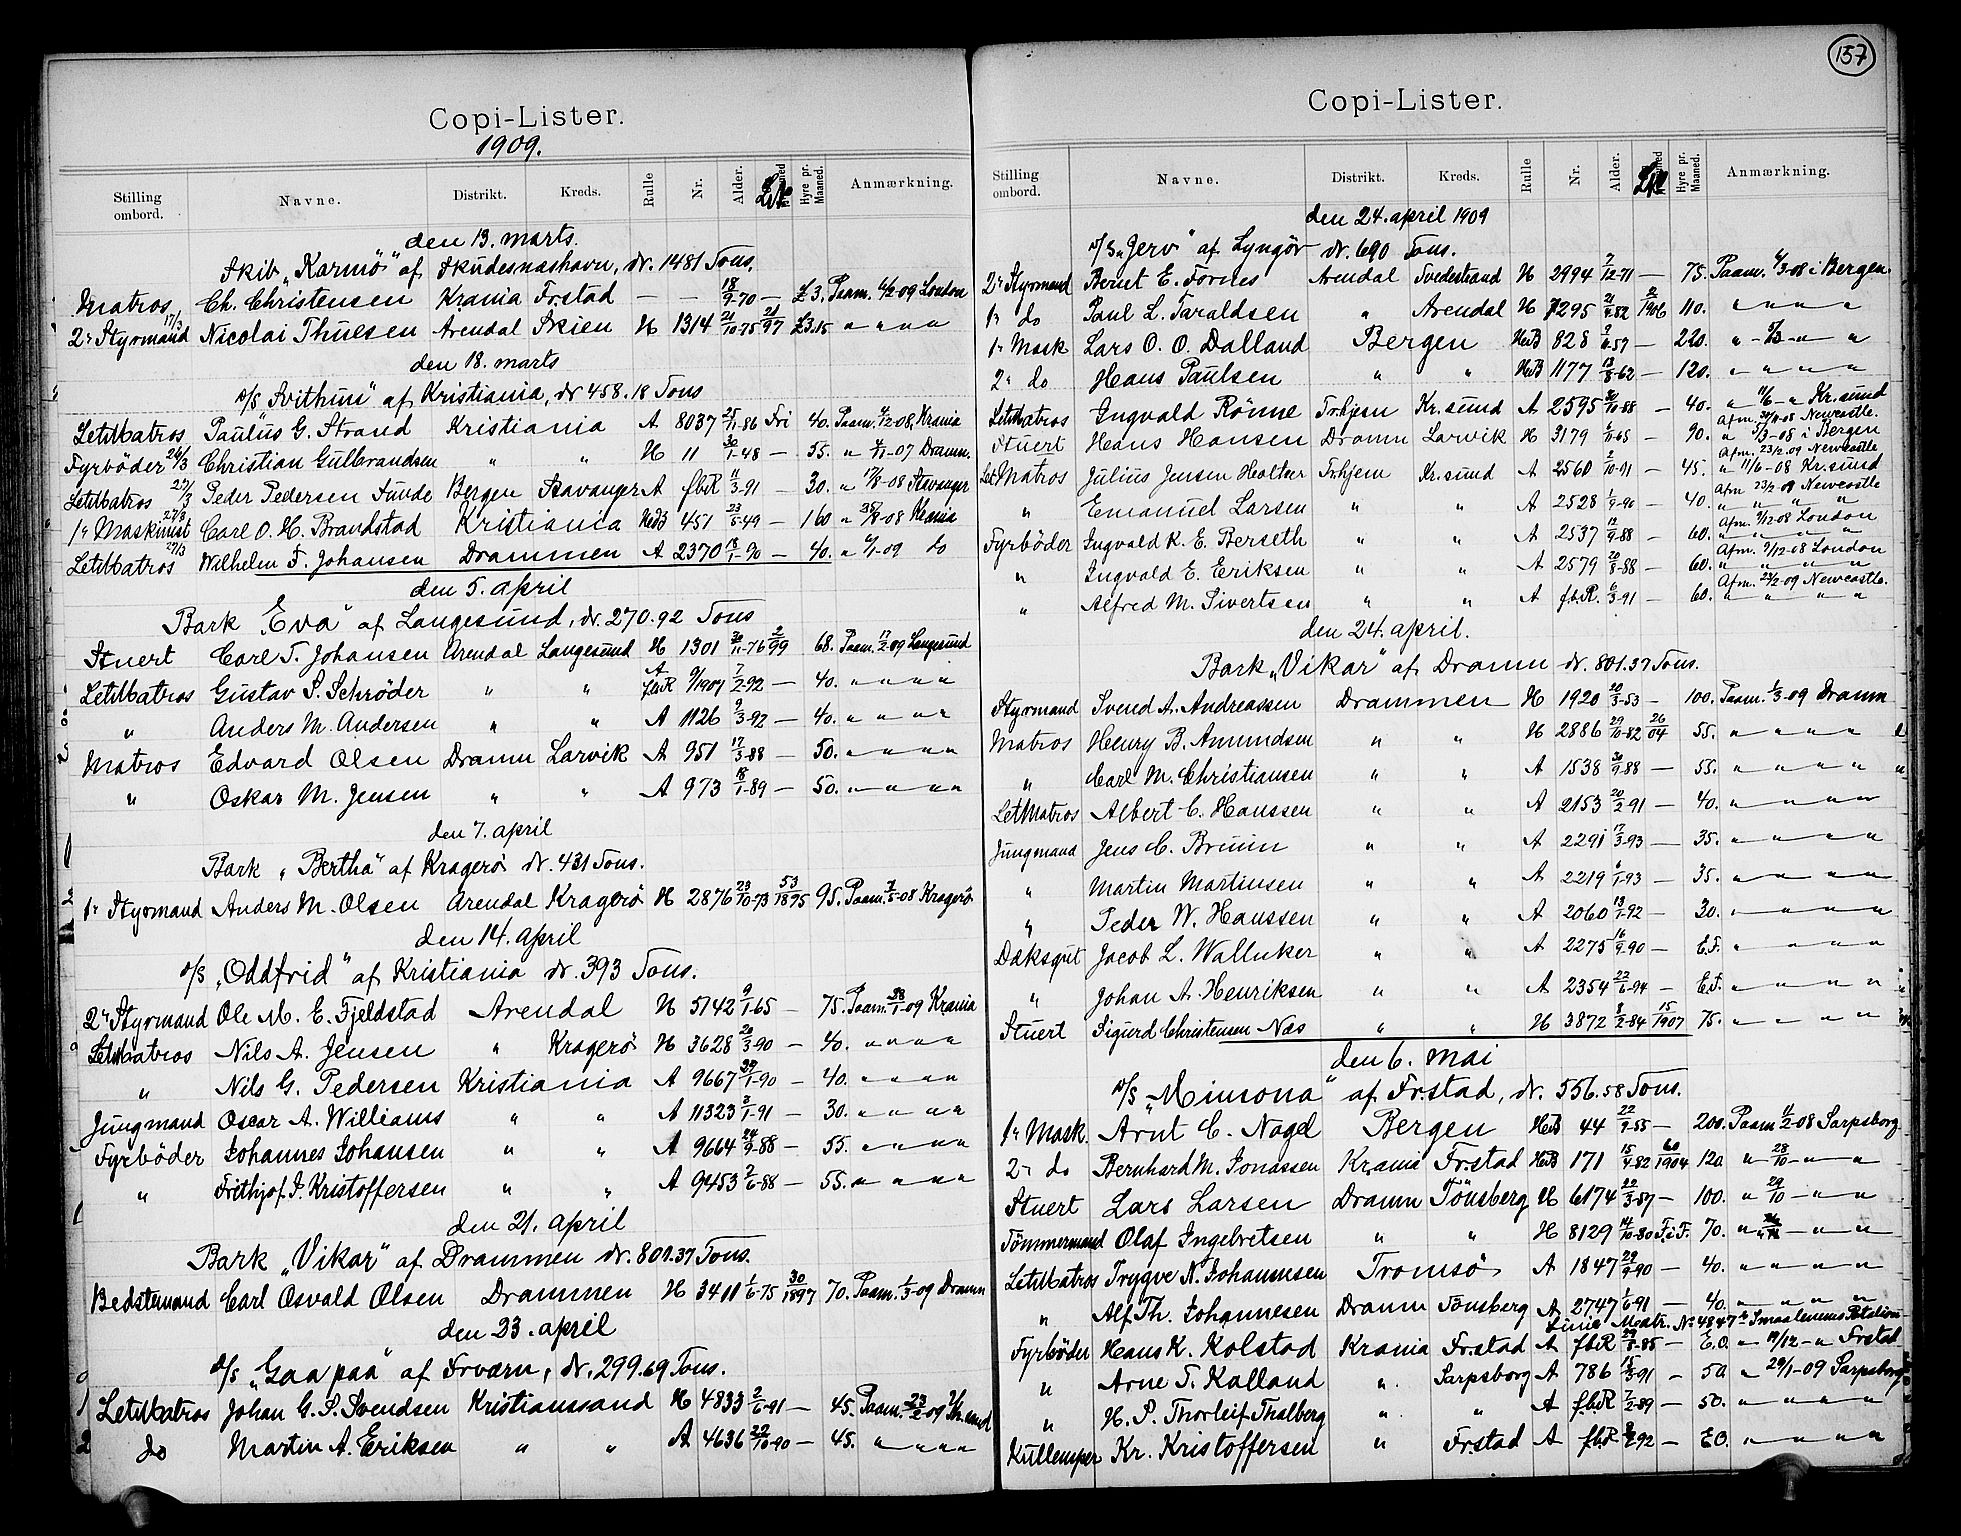 Copi-Lister.
1909.
Stilling ombord. Navne. Distrikt. Kreds. Rulle Nr. Alder. Hyre pr. Maaned. Anmærkning.
den 13. marts.
Skib „Karmö" af Skudesnæshavn, dr. 1481 Tons.
Matros Ch. Christensen Krania Fr.stad — — 18/9-70 — £3. Paam. 6/2-09 London
2n Styrmand 17/3 Nicolai Thuesen Arendal Skien H 1314 21/10-75 21/97 £3.15 " " " "
den 18. marts
s/s Svithun" af Kristiania, dr 458.18 Tons
LetMatros Paulus G. Strand Kristiania A 8037 25/11-86 Fri 40. Paam. 4/12-08, Krania
Fyrböder 26/3 Christian Gulbrandsen " " H 11 30/1-48 — 55. " 4/11-07 Dramn.
LetMatros 27/3 Peder Pedersen Tunde Bergen Stavanger A fbR 11/3-91 — 30. " 17/8-08 Stavanger
1n Maskinist 27/3 Carl O. H. Brandstad Kristiania HdB 451 23/5-49 — 160 " /8-08 Krania
LetMatros 27/3 Wilhelm F. Johansen Drammen A 2370 18/1-90 — 40. " 6/1-09 do
den 5. april
Bark „Eva" af Langesund, dr. 270.92 Tons
Stuert Carl T. Johansen Arendal Langesund H 1301 30/11-76 2/99 68. Paam. 17/2-09 Langesund
LetMatros Gustav S. Schrøder " " A fbR 9/1907 7/2-92 — 40. " " " "
" Anders M. Andersen " " A 1126 9/3-92 — 40. " " " "
Matros Edvard Olsen Dramn Larvik A 951 17/3-88 — 50. " " " "
" Oskar M. Jensen " " A 973 18/1-89 — 50. " " " "
den 7. april
Bark „Bertha" af Kragerö dr. 431 Tons.
1n Styrmand Anders M. Olsen Arendal Kragerö H 2876 23/10-73 53/1895 95. Paam. 7/5-08 Kragerö
den 14. april
s/s „Oddfrid" af Kristiania dr. 393 Tons.
2n Styrmand Ole M. E. Fjeldstad Arendal H 5742 9/1-65 — 75. Paam. 28/1-09 Krania
LetMatros Nils A. Jensen " Kragerö H 3628 20/3-90 — 40. " " " "
" Nils G. Pedersen Kristiania A 9667 29/1-90 — 40. " " " "
Jungmand Oscar A. Williams " " A 11323 3/1-91 — 30. " " " "
Fyrböder Johannes Johansen " " A 9664 24/9-88 — 55. " " " "
" Frithjof J. Kristoffersen " " A 9453 2/6-88 — 55. " " " "
den 21. april
Bark „Vikar" af Drammen dr. 801.37 Tons.
Bedstemand Carl Osvald Olsen Drammen H 3411 1/6-75 30/1897 70. Paam. 1/3-09 Dramn
den 23. april
s/s „Gaa paa" af Fr.værn, dr. 299.69 Tons.
LetMatros Johan G. S. Svendsen Kristianssand H 4833 2/6-91 — 45. Paam. 23/2-09
do Martin A. Eriksen " " A 4636 22/10-90 — 45. " " " "
157
Copi-Lister.
Stilling ombord. Navne. Distrikt. Kreds. Rulle Nr. Alder. Hyre pr. Maaned. Anmærkning.
den 24. april 1909
s/s „Jerv" af Lyngör dr. 690 Tons.
2n Styrmand Bernt E. Fornes Arendal Tvedestrand H 2994 7/12-71 — 75. Paam. 6/3-08 i Bergen.
1n do Paul L. Taraldsen " Arendal H 7295 21/9-82 2/1906 110. " " " "
1n Mask Lars O. O. Dalland Bergen HdB 828 9/6-59 — 220. " " "
2n do Hans Paulsen " " HdB 1177 13/8-62 — 120. " " " "
LetMatros Ingvald Rönne Tr.hjem Kr.sund A 2595 30/10-88 — 40. " 11/6 - " Kr.sund
Afm. 30/11-08 Newcastle.
Stuert Hans Hansen Dramn Larvik H 3179 6/11-65 — 90. " 5/3-08 i Bergen
Afm. 23/2-09 Newcastle
LetMatros Julius Jensen Holter Tr.hjem Kr.sund A 2560 2/10-91 — 45. " 11/6-08 Kr.sund
Afm 23/2-09 Newcastle
" Emanuel Larsen " " A 2528 1/9-90 — 40. " " "
Afm. 9/12-08 London
Fyrböder Ingvald K. E. Berseth " " A 2537 12/9-88 — 60. " " " "
Afm. 9/12-08 London
" Ingvald E. Eriksen " " A 2579 20/8-88 — 60. " " " "
Afm. 23/2-09 Newcastle.
" Alfred M. Sivertsen " " A fbR. 6/3-91 — 60. " " " "
den 24. april.
Bark „Vikar" af Dramn dr. 801.37 Tons.
Styrmand Svend A. Andreassen Drammen H 1920 20/3-53 — 100. Paam. 1/3-09 Dramn
Matros Henry B. Amundsen " " H 2886 29/10-82 26/04 55. " " " "
" Carl M. Christiansen " " A 1538 30/9-88 — 55. " " " "
LetMatros Albert C. Hanssen " " A 2153 20/2-91 — 40. " " " "
Jungmand Jens C. Bruun " " A 2291 17/3-93 — 35. " " " "
" Martin Martinsen " " A 2219 6/1-93 — 35. " " " "
" Peder W. Hanssen " " A 2060 13/1-92 — 30. " " " "
Dæksgut Jacob L. Wallnker " " A 2275 16/9-90 — E.F. " " " "
" Johan A. Henriksen " " A 2354 22/6-94 — E.F. " " " "
Stuert Sigurd Christensen Næs " " H 3872 8/2-84 15/1907 75. " " " "
den 6. mai
s/s „Minsona" af Fr.stad, dr. 556.58 Tons.
1n Mask. Arnt C. Nagel Bergen HdB 44 22/9-55 — 200. Paam 11/2-08 Sarpsborg
2n do Bernhard M. Jonassen Krania Fr.stad HdB 171 15/4-82 60/1904 120. " 28/10 - " "
Stuert Lars Larsen Dramn Tönsberg H 6174 22/3-57 — 100. " 29/10 - " "
Tömmermand Olaf Ingebretsen " " H 8129 14/10-80 F.i F. 70. " " "
LetMatros Trygve N. Johannesen Tromsö A 1847 29/9-90 — 40. " " " "
" Alf Th. Johannesen Dramn Tönsberg A 2747 1/6-91 — 40. " " " "
Linie Matr. No 4847 Smaalenenes Rotation
Fyrböder Hans K. Kolstad Krania Fr.stad A fbR 29/8-85 — E.O. " 19/12 - " Fr.stad
" Arne T. Kalland " Sarpsborg A 786 15/3-91 — 50. " 29/1-09 Sarpsborg
" H. P. Thorleif Thalberg " " A fbR 7/2-89 — 50. " " " "
Kullemper Kr. Kristoffersen " Fr.stad A fbR 8/2-92 — E.O. " " " "